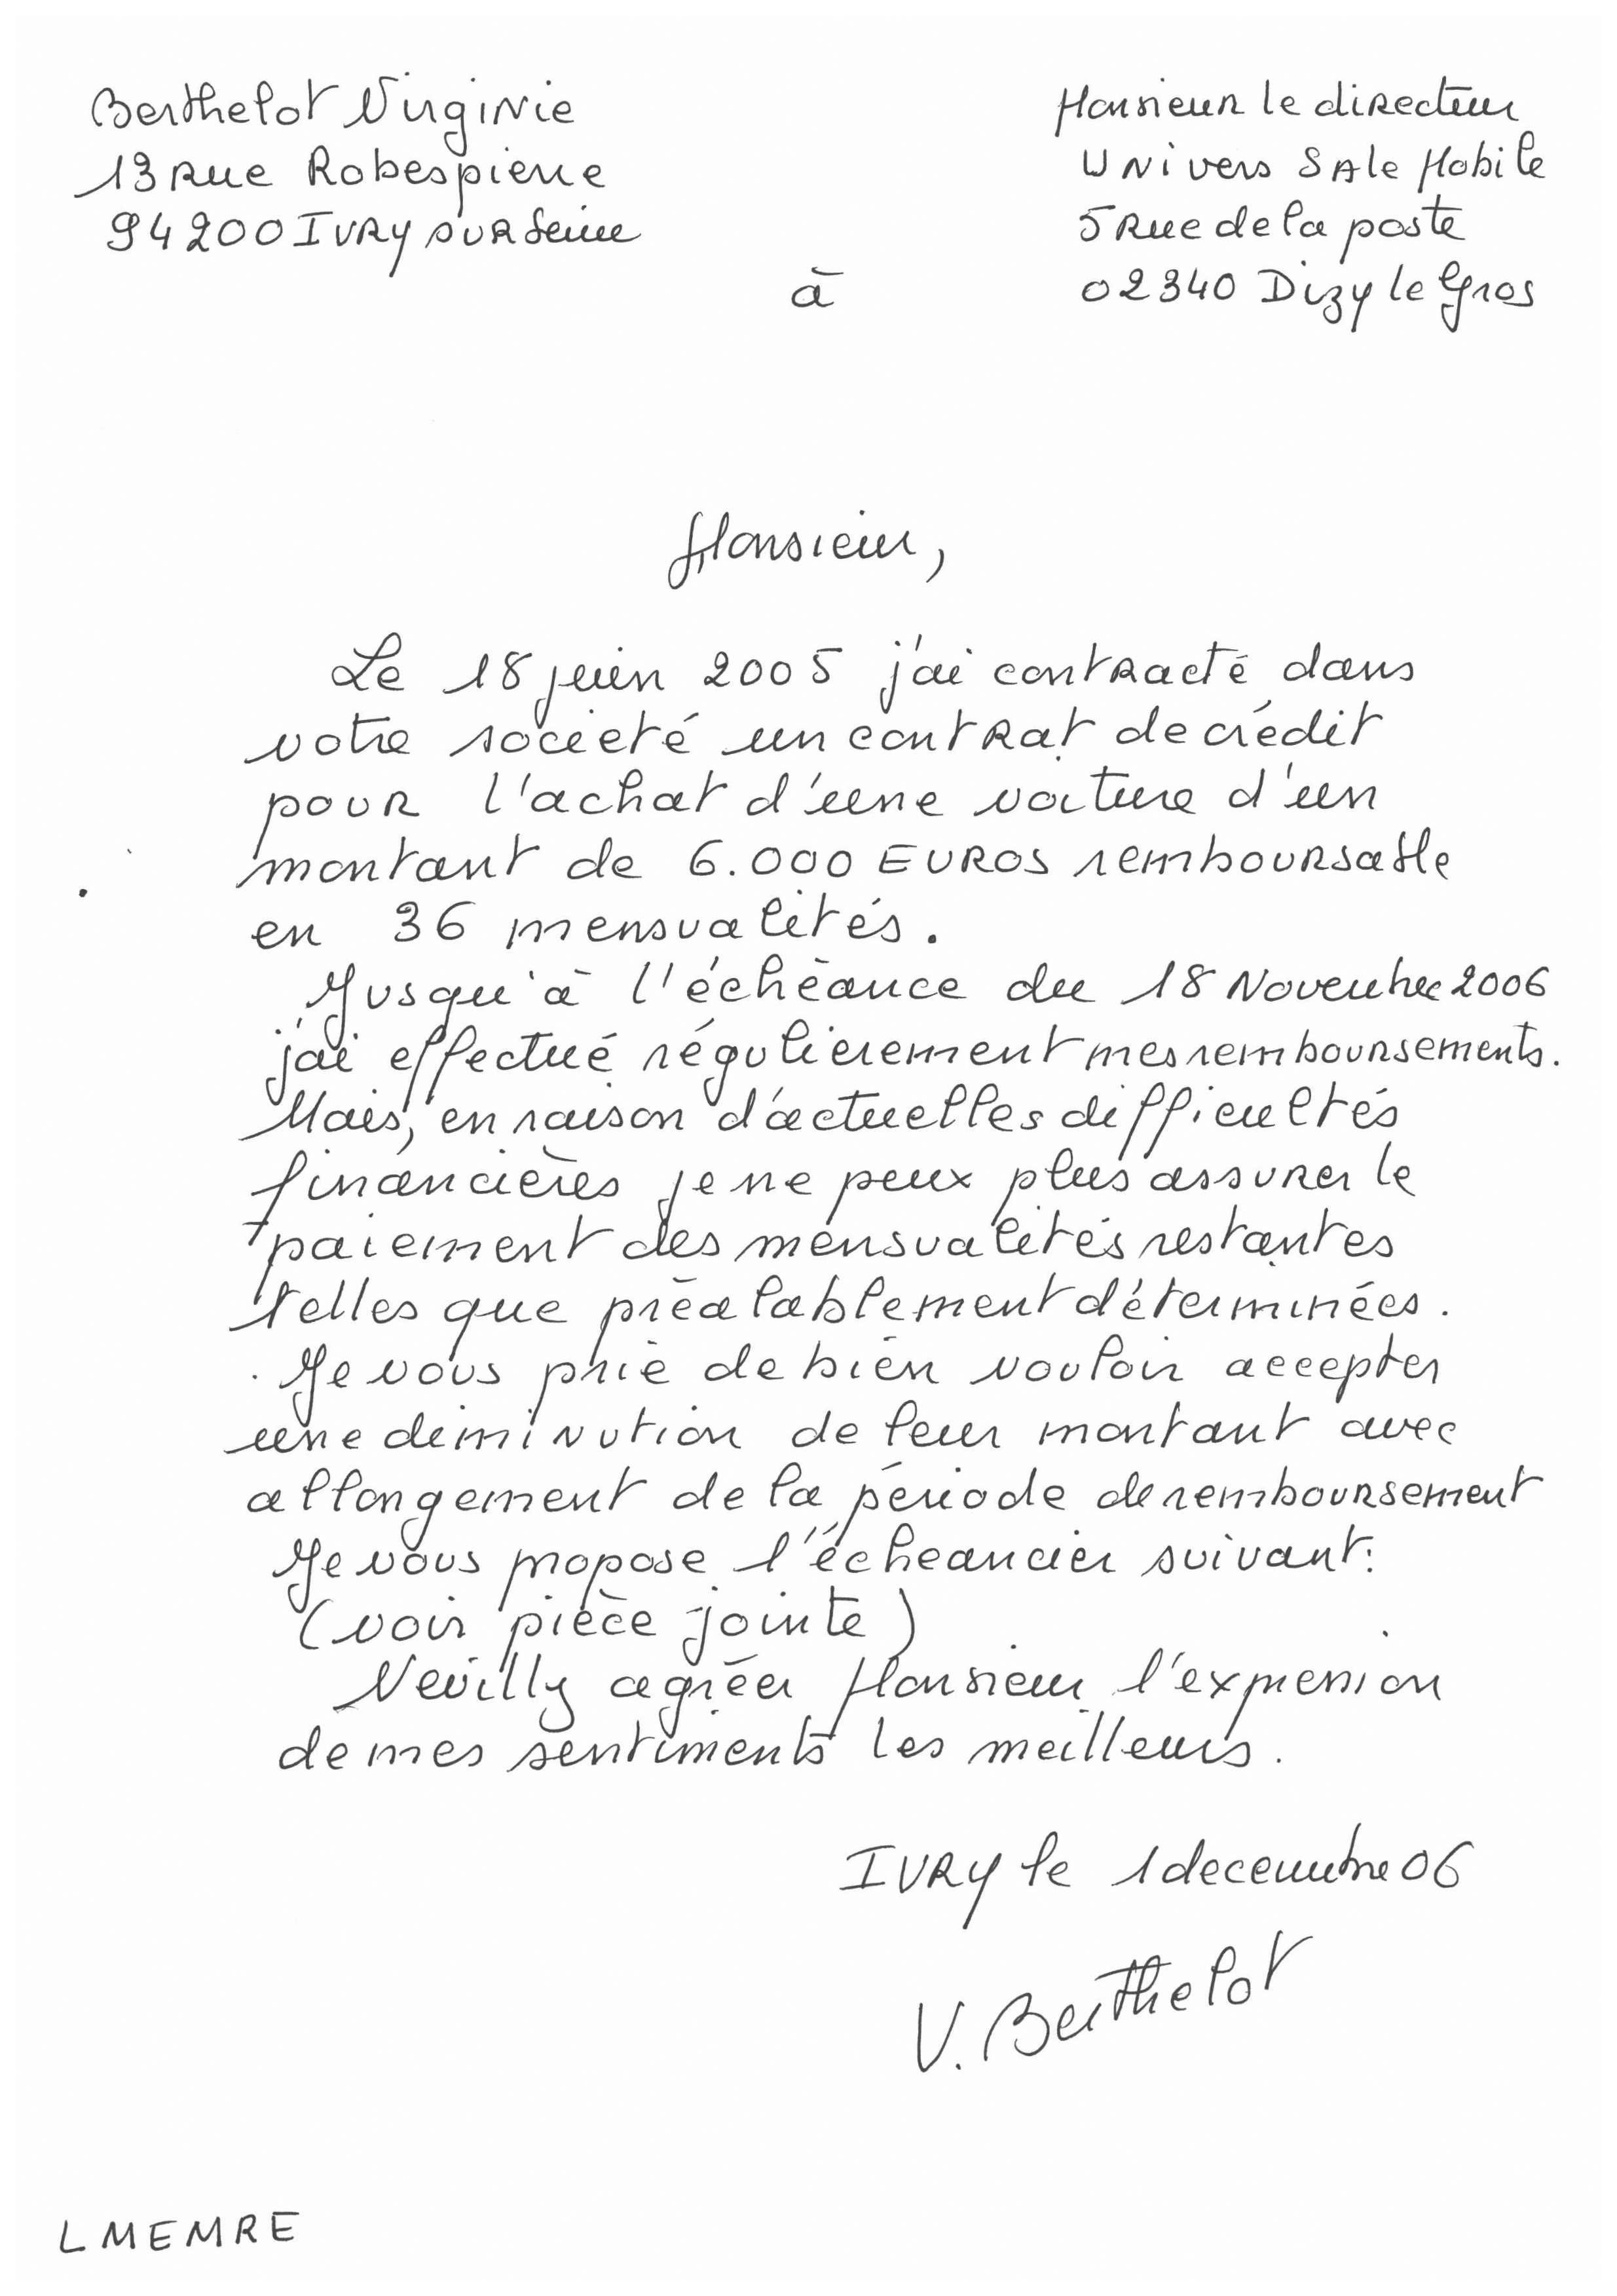 Berthelot Virginie
13 Rue Robespierre
94200 IVRY sur Seine
à
Monsieur le directeur
UNivers SAle Mobile
5 Rue de la poste
02340 Dizy le Gros
Monsieur,
Le 18 juin 2005 j'ai contracté dans
votre société un contrat de crédit
pour l'achat d'une voiture d'un
montant de 6.000 EUROS remboursable
en 36 mensualités.
Jusqu'à l'échéance du 18 Novembre 2006
j'ai effectué régulierement mes remboursements.
Mais, en raison d'actuelles difficultés
financières je ne peux plus assurer le
paiement des mensualités restantes
telles que préalablement déterminées.
Je vous prie de bien vouloir accepter
une diminution de leur montant avec
allongement de la période de remboursement
Je vous propose l'écheancier suivant:
(voir pièce jointe)
Veuilly agréer Monsieur l'expression
de mes sentiments les meilleurs.
IVRY le 1 decembre 06
V. Berthelot
LMEMRE